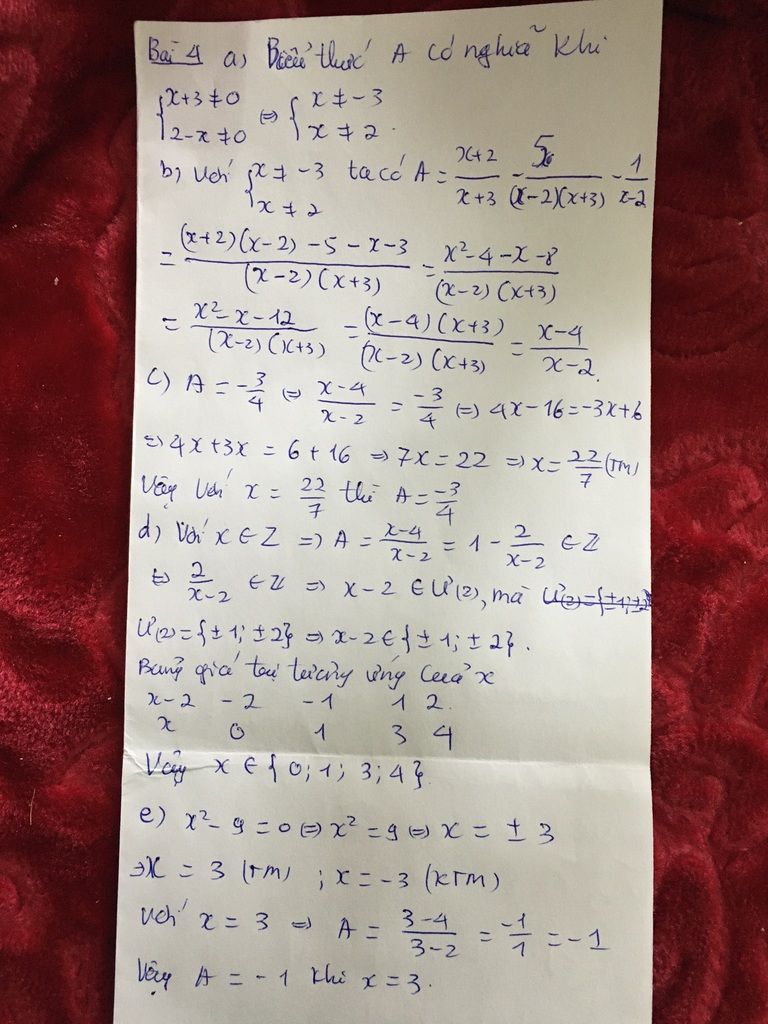 Bài 4 a) Biểu thức A có nghĩa khi
{x+3≠0 ⇔ {x ≠ -3
{2-x ≠0 {x ≠ 2.
b) Với {x ≠ -3 ta có A = (x+2)/(x+3) - 5/((x-2)(x+3)) - 1/(x-2)
{x ≠ 2
= ((x+2)(x-2) - 5 - x - 3)/((x-2)(x+3)) = (x²-4-x-8)/((x-2)(x+3))
= (x²-x-12)/((x-2)(x+3)) = ((x-4)(x+3))/((x-2)(x+3)) = (x-4)/(x-2).
c) A = -3/4 ⇔ (x-4)/(x-2) = -3/4 ⇔ 4x-16=-3x+6
⇒ 4x+3x = 6+16 ⇒ 7x = 22 ⇒ x = 22/7 (TM)
Vậy với x = 22/7 thì A = -3/4
d) Với x ∈ Z ⇒ A = (x-4)/(x-2) = 1 - 2/(x-2) ∈ Z
⇔ 2/(x-2) ∈ Z ⇒ x-2 ∈ Ư(2), mà Ư(2)={±1;±2}
Ư(2)={±1; ±2} ⇒ x-2 ∈ {±1; ±2}.
Bảng giá trị tương ứng của x
x-2 -2 -1 1 2.
x 0 1 3 4
Vậy x ∈ {0; 1; 3; 4}
e) x² - 9 = 0 ⇔ x² = 9 ⇔ x = ±3
⇒ x = 3 (TM) ; x = -3 (KTM)
Với x = 3 ⇒ A = (3-4)/(3-2) = -1/1 = -1
Vậy A = -1 khi x = 3.